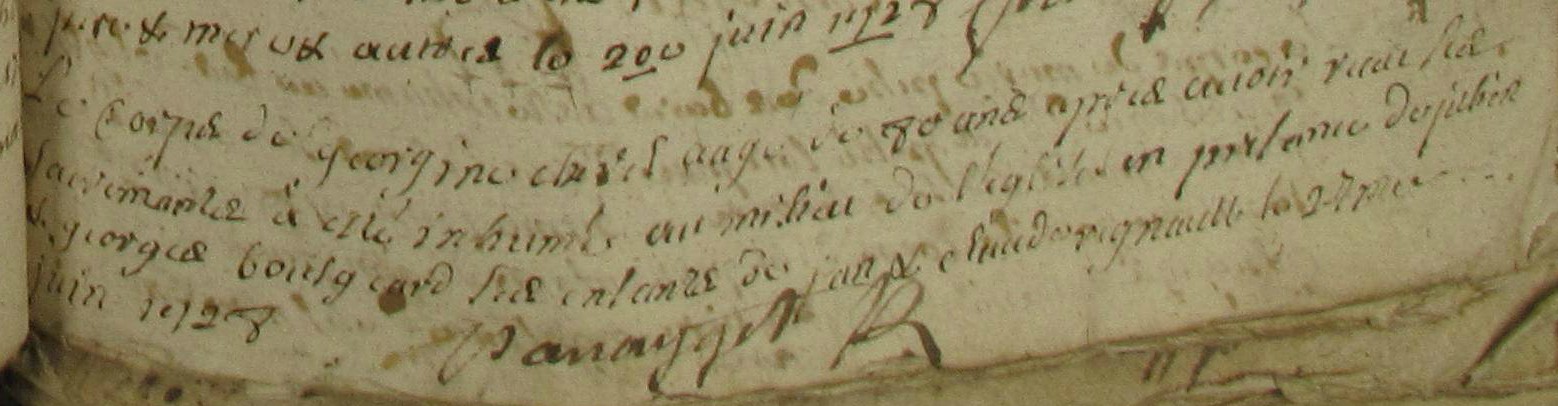 pere & mere & autres le 20e juin 1728
Le Corps de georgine aagé de 80 ans apres avoir receu ses
sacremants a esté inhumé au milieu de l'eglise en presence de julien
& georges bousgeard ses enfants de jan & de regnault le 24me
juin 1728